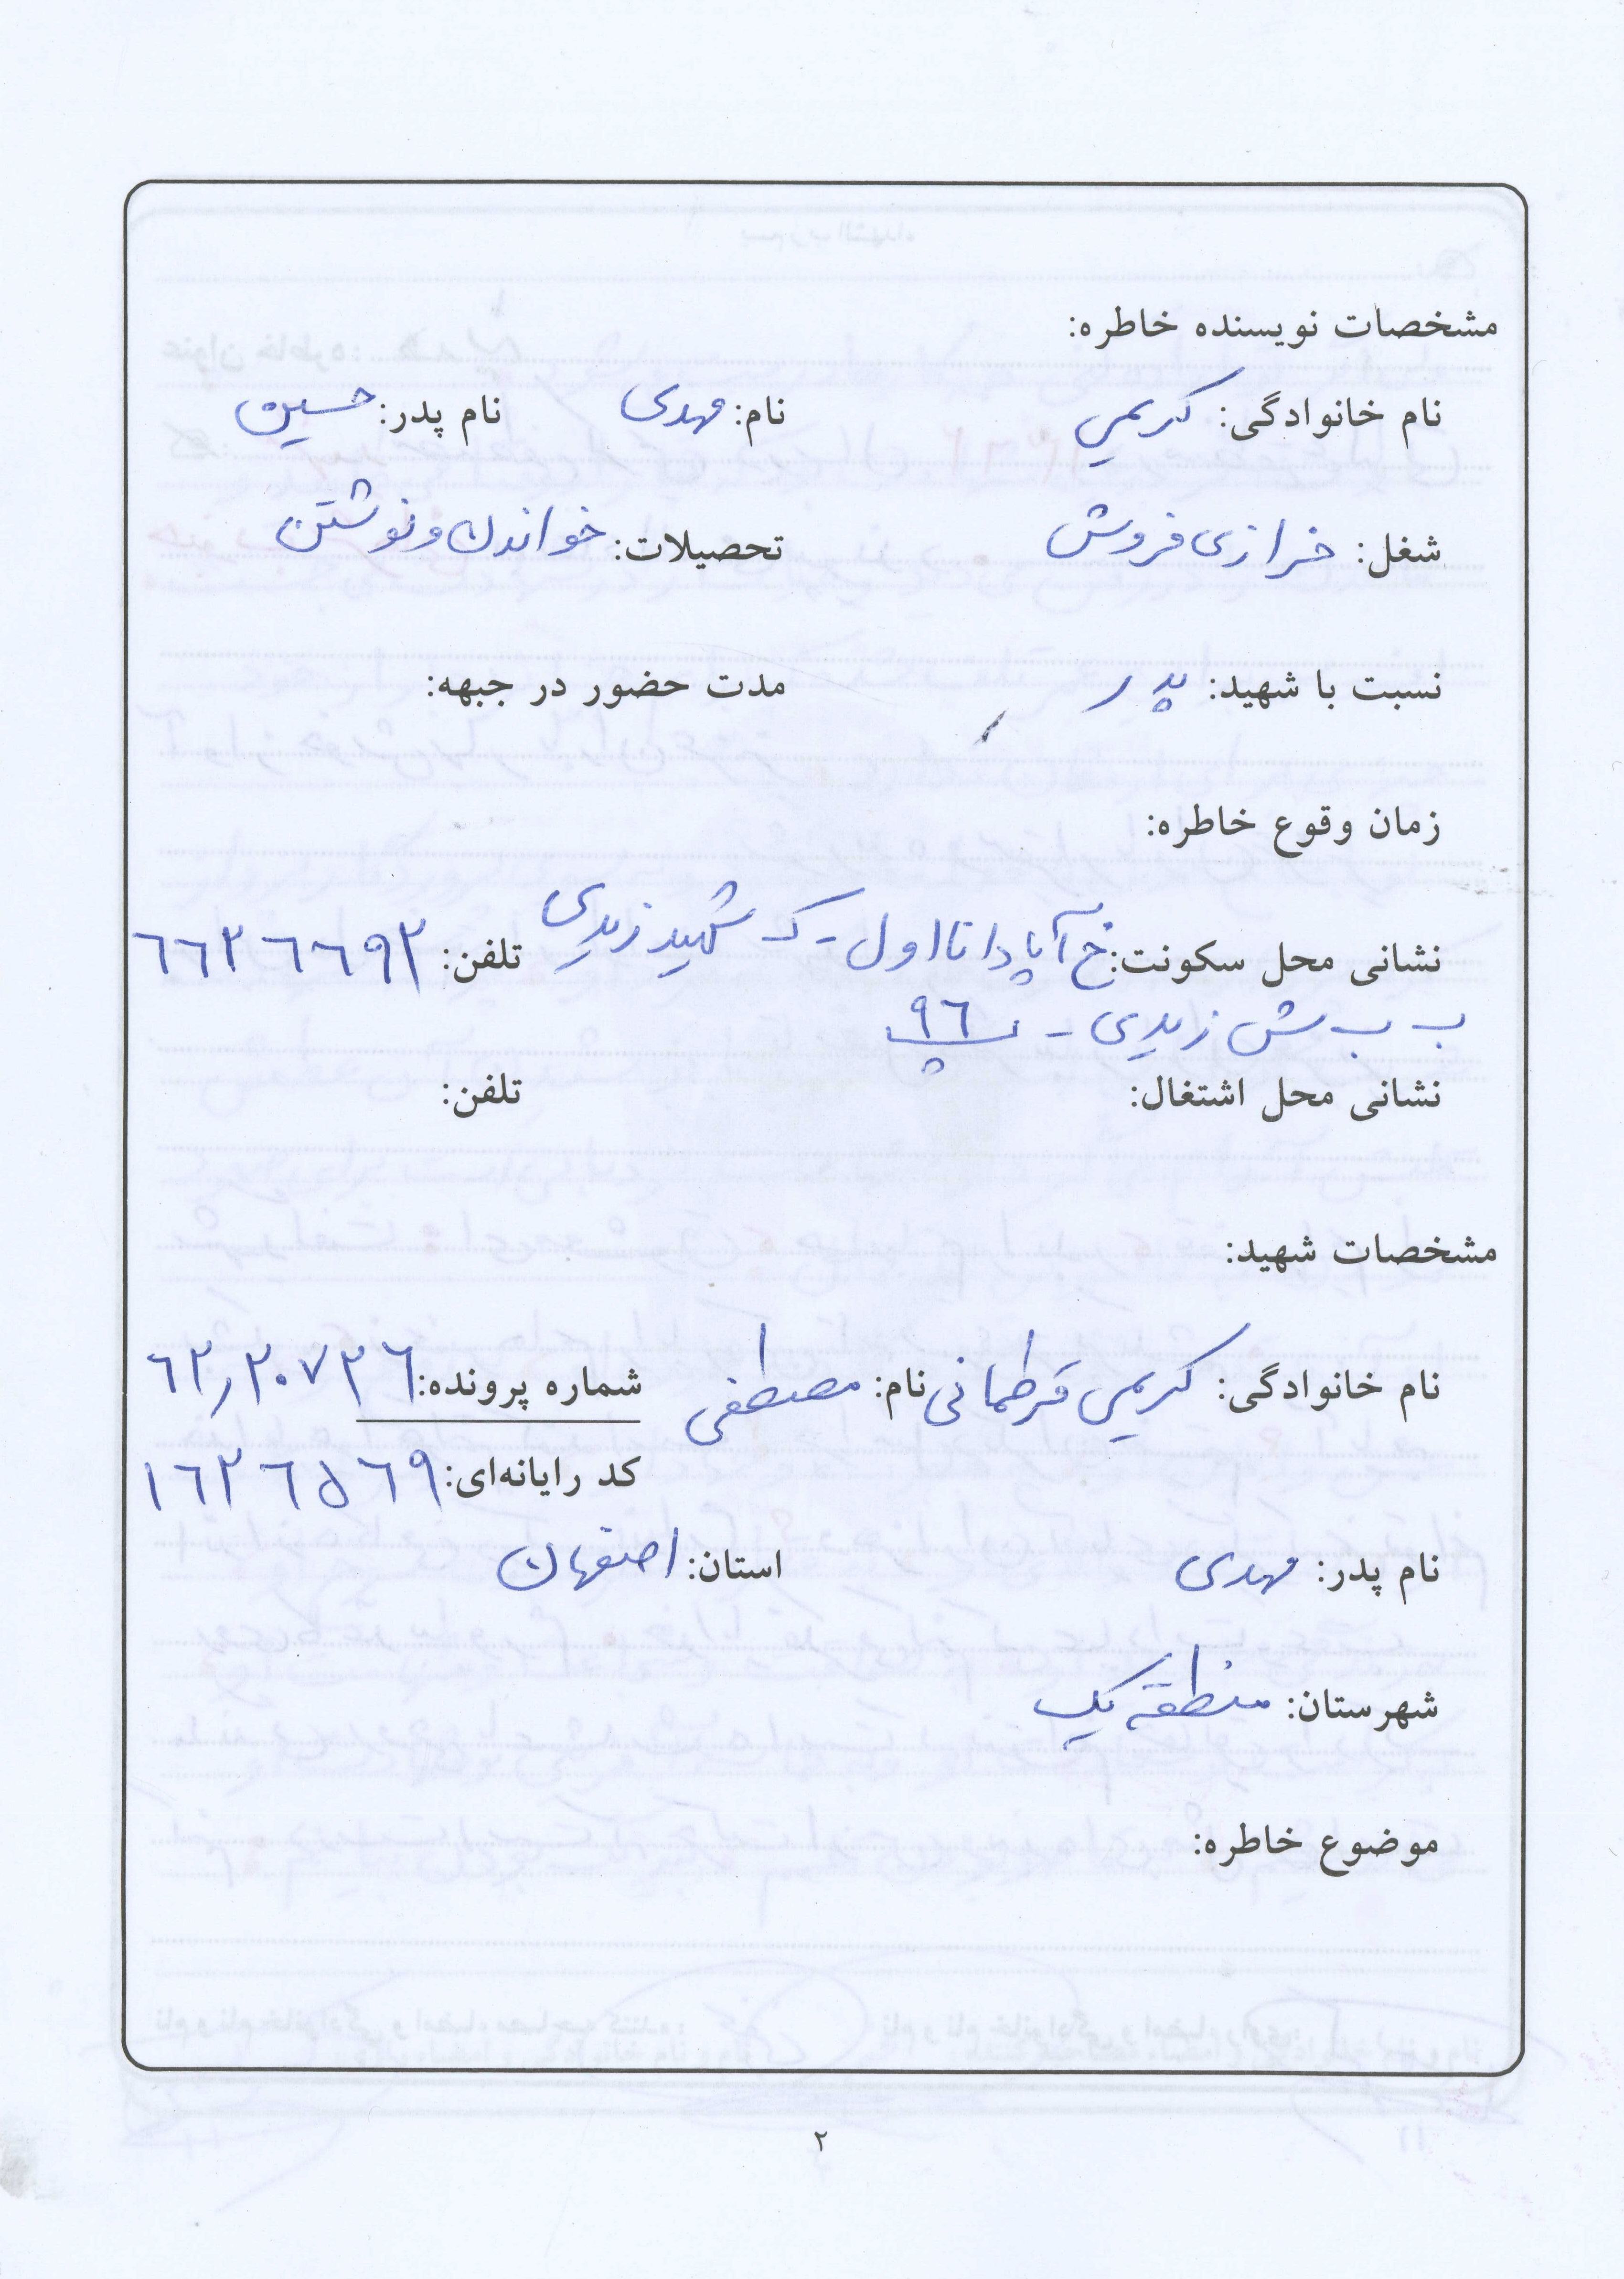 مشخصات نویسنده خاطره:
نام خانوادگی: کریمی نام: مهدی نام پدر: حسین
شغل: خرازی فروش تحصیلات: خواندن و نوشتن
نسبت با شهید: پدر مدت حضور در جبهه:
زمان وقوع خاطره:
نشانی محل سکونت: خ آپادانا اول - ک شهید زیدی تلفن: ۶۶۲۶۶۹۲
ب ب ش زیدی - پ ۹۶
نشانی محل اشتغال: تلفن:
مشخصات شهید:
نام خانوادگی: کریمی قرطمانی نام: مصطفی شماره پرونده: ۶۲٫۲۰۷۲۶
کد رایانه‌ای: ۱۶۲۶۵۶۹
نام پدر: مهدی استان: اصفهان
شهرستان: منطقه یک
موضوع خاطره:
۲